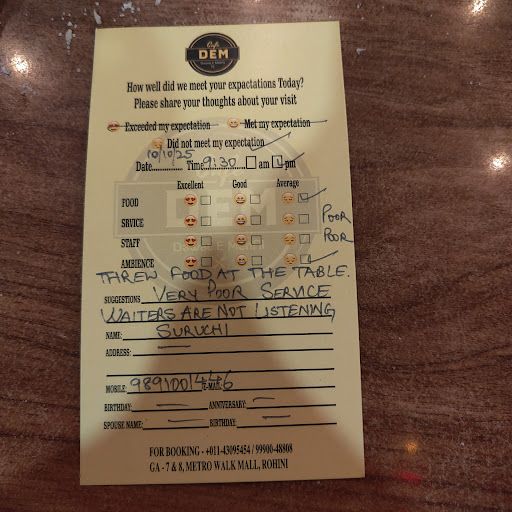 Cafe
DEM
How well did we meet your expactations Today?
Please share your thoughts about your visit
Exceeded my expectation Met my expectation
Did not meet my expectation
Date 10/10/25 Time 9:30 am pm
Excellent Good Average
FOOD
SRVICE POOR
STAFF POOR
AMBIENCE
THREW FOOD AT THE TABLE.
SUGGESTIONS VERY POOR SERVICE
WAITERS ARE NOT LISTENING
NAME: SURUCHI
ADDRESS:
MOBILE: 9891001446 E-MAIL:
BIRTHDAY: ANNIVERSARY:
SPOUSE NAME: BIRTHDAY:
FOR BOOKING - +011-43095454 / 99900-48808
GA - 7 & 8, METRO WALK MALL, ROHINI